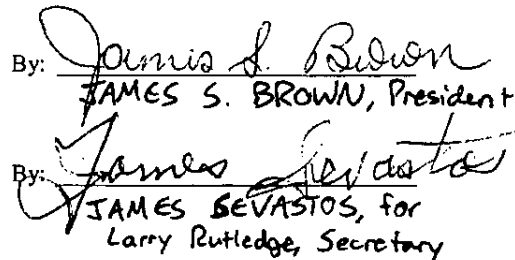 By: James S. Brown
JAMES S. BROWN, President
By: James Sevastos
JAMES SEVASTOS, for
Larry Rutledge, Secretary